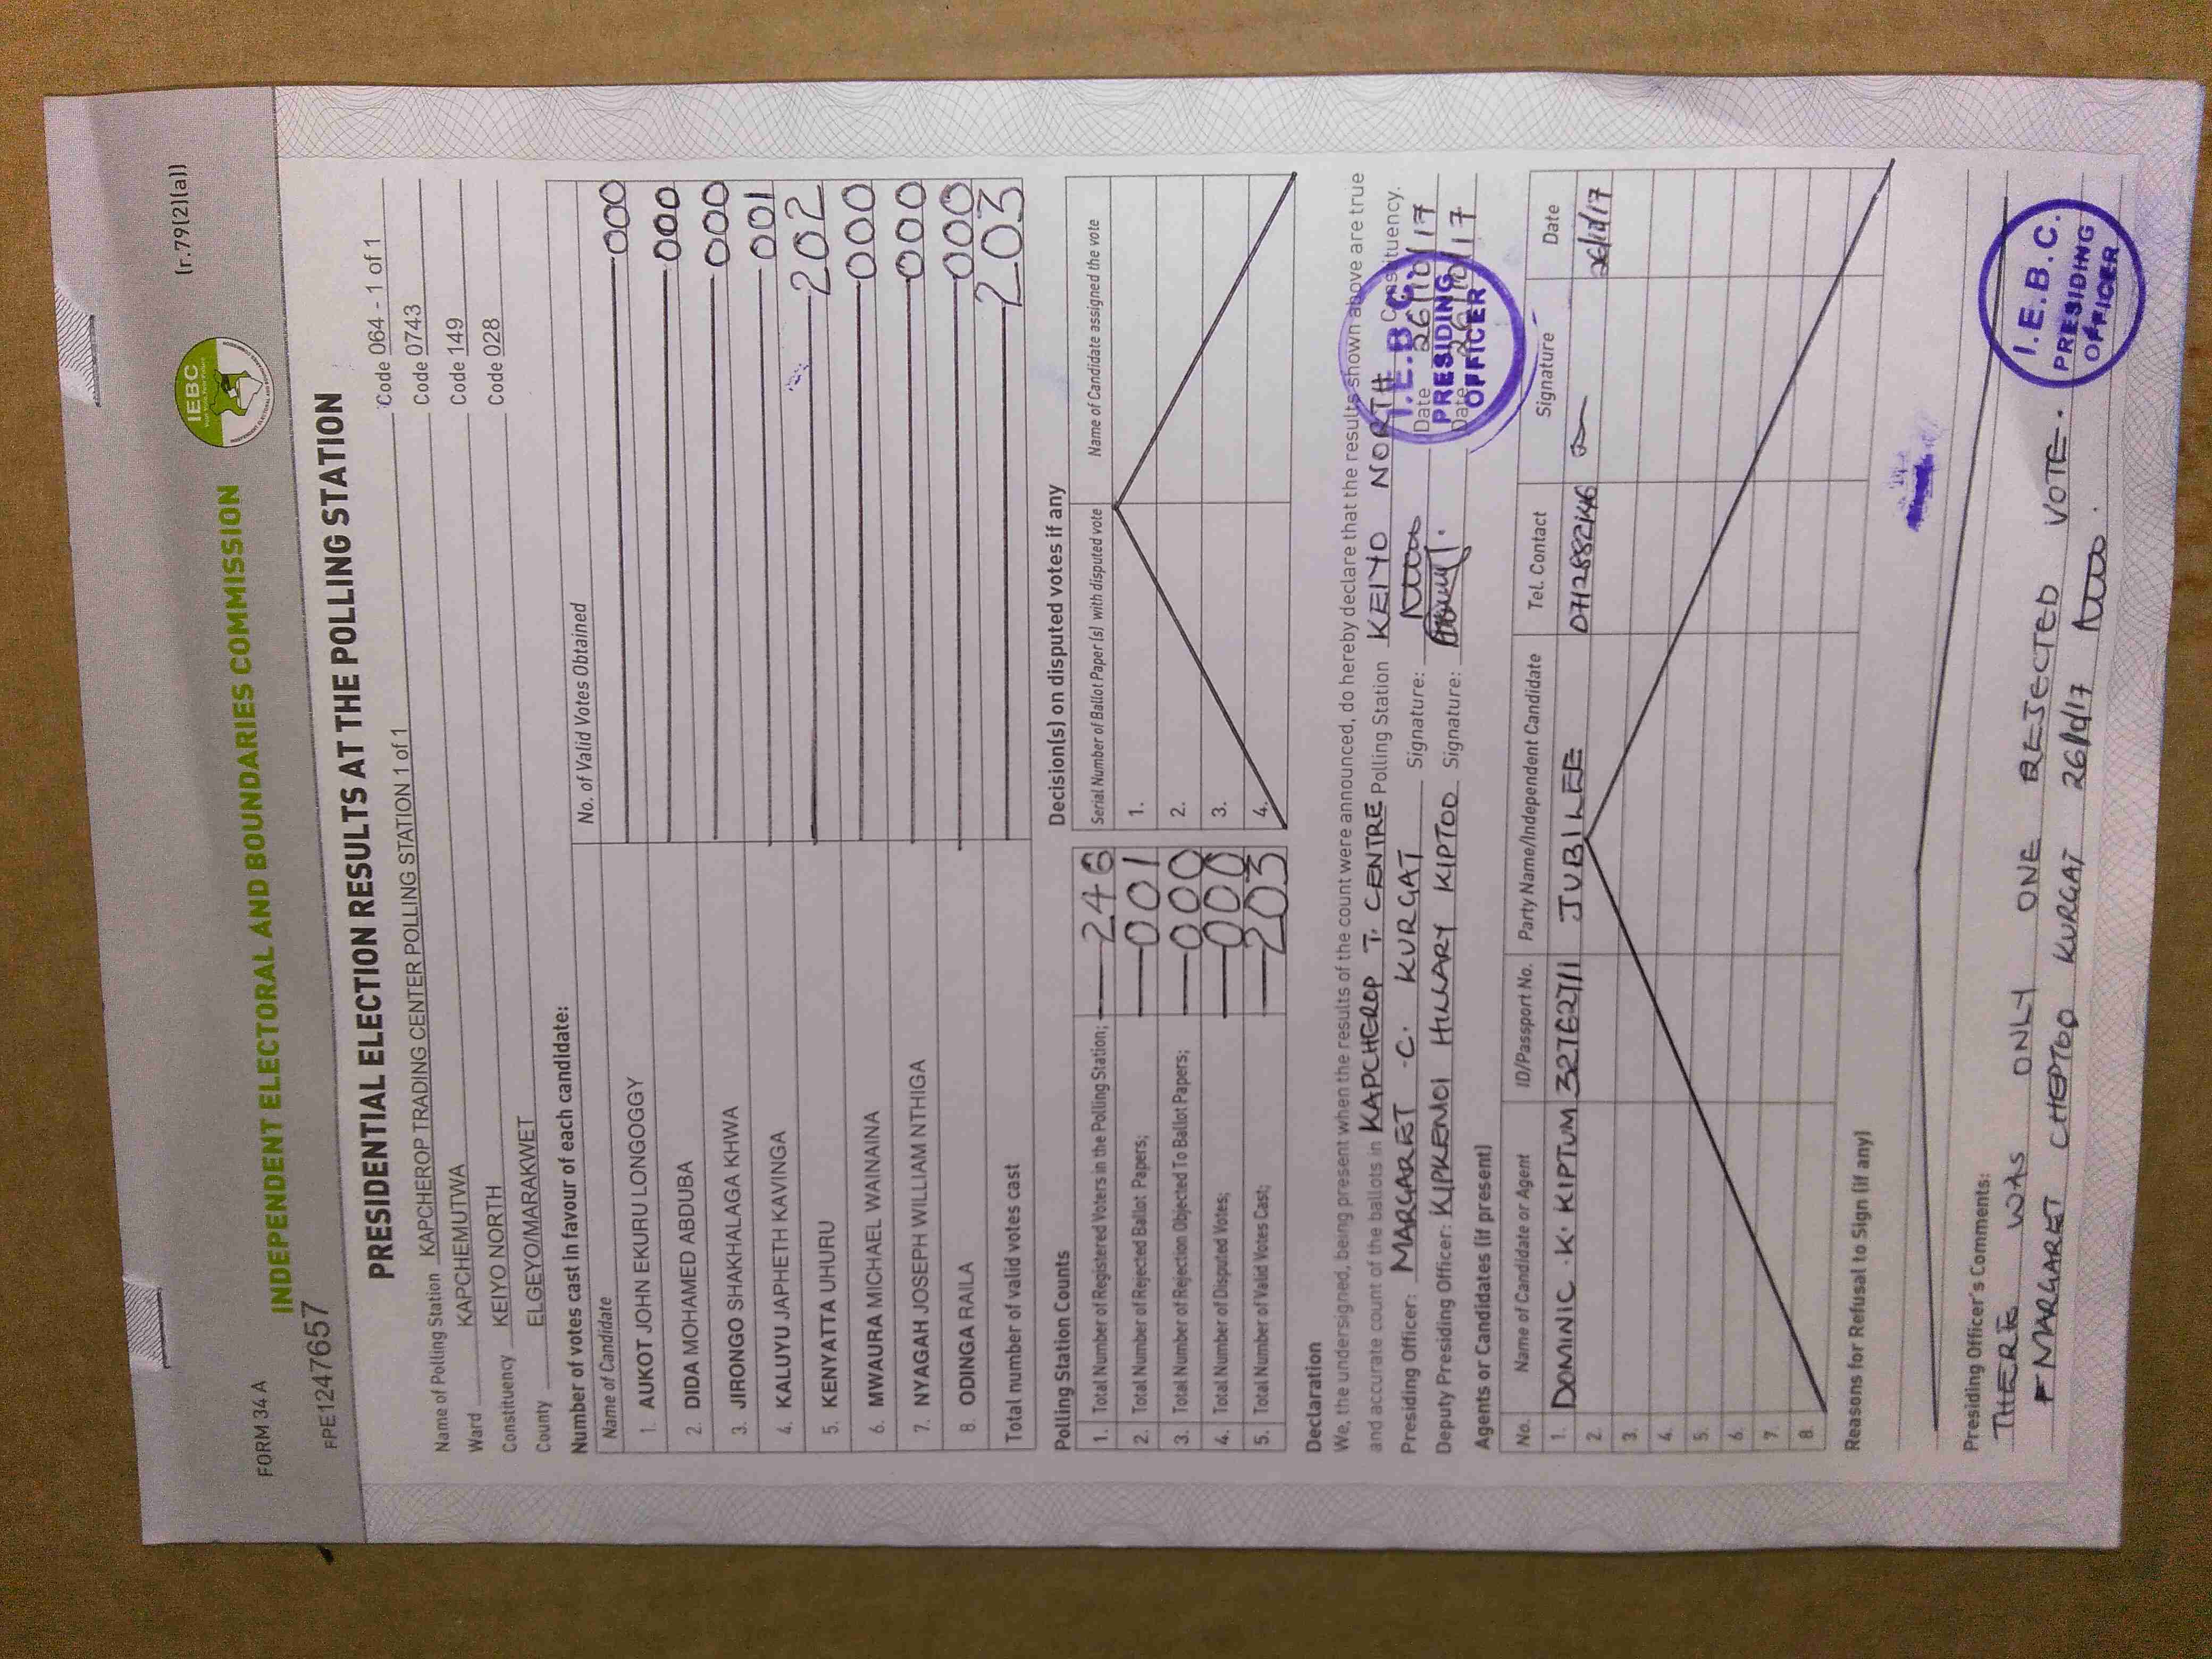 FORM 34 A
(r.79(2)(a))
IEBC
INDEPENDENT ELECTORAL AND BOUNDARIES COMMISSION
FPE1247657
PRESIDENTIAL ELECTION RESULTS AT THE POLLING STATION
Name of Polling Station KAPCHEROP TRADING CENTER POLLING STATION 1 of 1 Code 064 - 1 of 1
Ward KAPCHEMUTWA Code 0743
Constituency KEIYO NORTH Code 149
County ELGEYO/MARAKWET Code 028
Number of votes cast in favour of each candidate:
Name of Candidate No. of Valid Votes Obtained
1. AUKOT JOHN EKURU LONGOGGY 000
2. DIDA MOHAMED ABDUBA 000
3. JIRONGO SHAKHALAGA KHWA 000
4. KALUYU JAPHETH KAVINGA 001
5. KENYATTA UHURU 202
6. MWAURA MICHAEL WAINAINA 000
7. NYAGAH JOSEPH WILLIAM NTHIGA 000
8. ODINGA RAILA 000
Total number of valid votes cast 203
Polling Station Counts
1. Total Number of Registered Voters in the Polling Station; 246
2. Total Number of Rejected Ballot Papers; 001
3. Total Number of Rejection Objected To Ballot Papers; 000
4. Total Number of Disputed Votes; 000
5. Total Number of Valid Votes Cast; 203
Decision(s) on disputed votes if any
Serial Number of Ballot Paper (s) with disputed vote Name of Candidate assigned the vote
1.
2.
3.
4.
Declaration
We, the undersigned, being present when the results of the count were announced, do hereby declare that the results shown above are true
and accurate count of the ballots in KAPCHEROP T. CENTRE Polling Station KEIYO NORTH Constituency.
Presiding Officer: MARGARET .C. KURGAT Signature: Date 26/10/17
Deputy Presiding Officer: KIPKEMOI HILLARY KIPTOO Signature: Date 26/10/17
I.E.B.C.
PRESIDING
OFFICER
Agents or Candidates (if present)
No. Name of Candidate or Agent ID/Passport No. Party Name/Independent Candidate Tel. Contact Signature Date
1. DOMINIC .K. KIPTUM 32762711 JUBILEE 0712882146 26/10/17
2.
3.
4.
5.
6.
7.
8.
Reasons for Refusal to Sign (if any)
Presiding Officer's Comments:
THERE WAS ONLY ONE REJECTED VOTE.
MARGARET CHEPTOO KURGAT 26/10/17
I.E.B.C.
PRESIDING
OFFICER